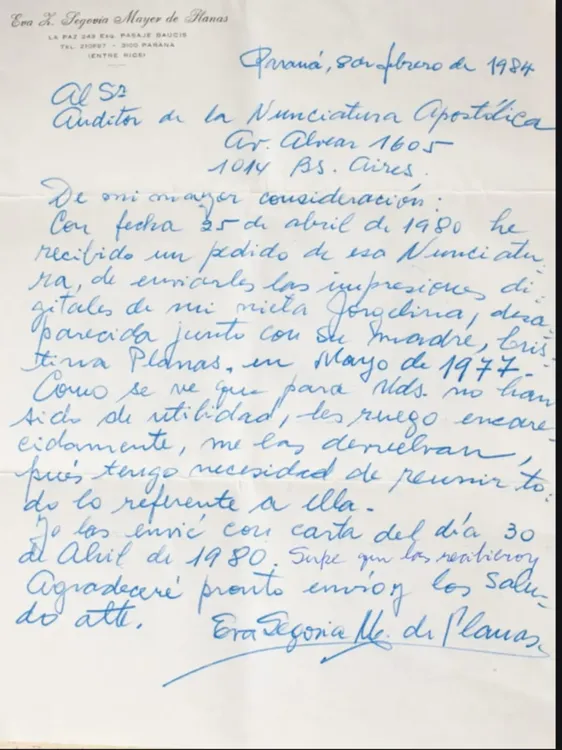 Eva Z. Segovia Mayer de Planas
LA PAZ 249 Esq. PASAJE BAUCIS
3100 PARANÁ
(ENTRE RIOS)
Paraná, 8 de febrero de 1984
Al Sr
Auditor de la Nunciatura Apostólica
Av. Alvear 1605
1014 Bs. Aires.
De mi mayor consideración:
Con fecha 25 de abril de 1980 he
recibido un pedido de esa Nunciatu-
ra, de enviarles las impresiones di-
gitales de mi nieta Jorgelina, desa-
parecida junto con su madre, Cris-
tina Planas, en Mayo de 1977.
Como se ve que para Uds. no han
sido de utilidad, les ruego encare-
cidamente, me las devuelvan,
pués tengo necesidad de reunir to-
do lo referente a ella.
Yo las envié con carta del día 30
de Abril de 1980. Supe que las recibieron
Agradeceré pronto envío y los salu-
do atte.
Eva Segovia M. de Planas